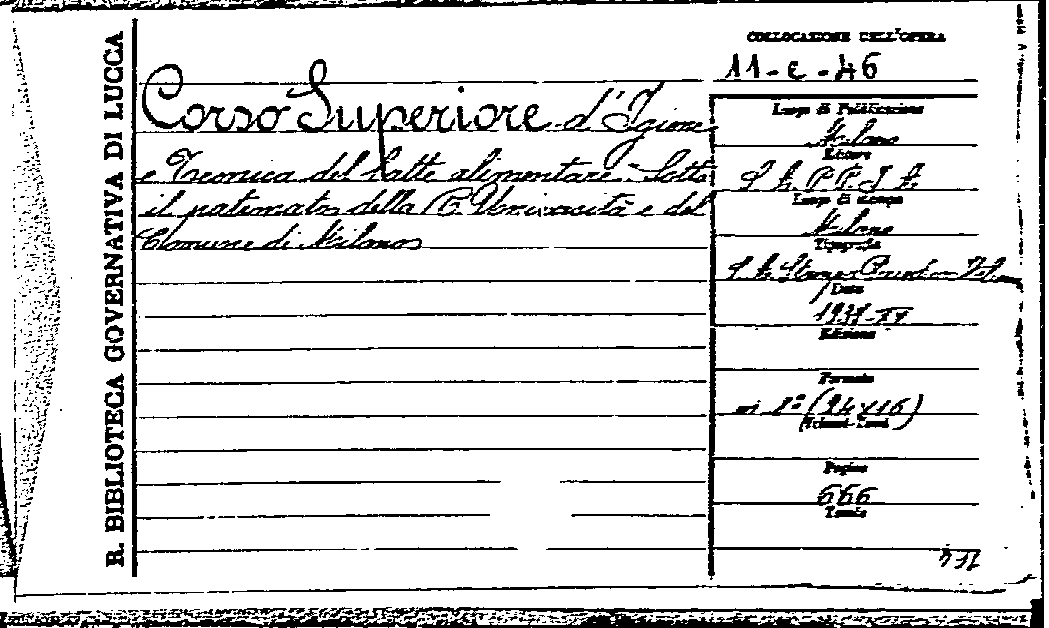 R. BIBLIOTECA GOVERNATIVA DI LUCCA
COLLOCAZIONE DELL'OPERA
11-e-46
Corso Superiore d'Igiene
e Tecnica del Latte alimentare. Sotto
il patronato della R. Università e del
Comune di Milano
Luogo di Pubblicazione
Milano
Editore
Luogo di stampa
Milano
Tipografia
Data
Edizione
Formato
in 8° (24x16)
Volumi-Tomi
Pagine
666
Tavole